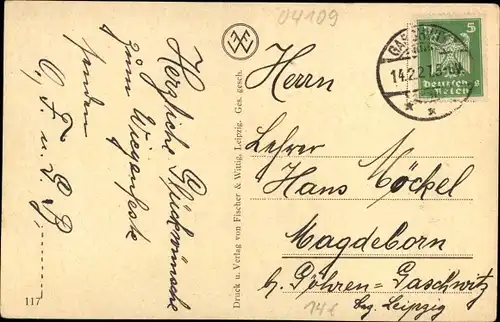 04109
Herzliche Glückwünsche
zum Wiegenfeste
senden
O. F. u. G. B.
117
Druck u. Verlag von Fischer & Wittig, Leipzig. Ges. gesch.
14.2.27
5
Deutsches
Reich
Herrn
Lehrer
Hans Möckel
Magdeborn
b. Göhren-Gaschwitz
14€
bez. Leipzig